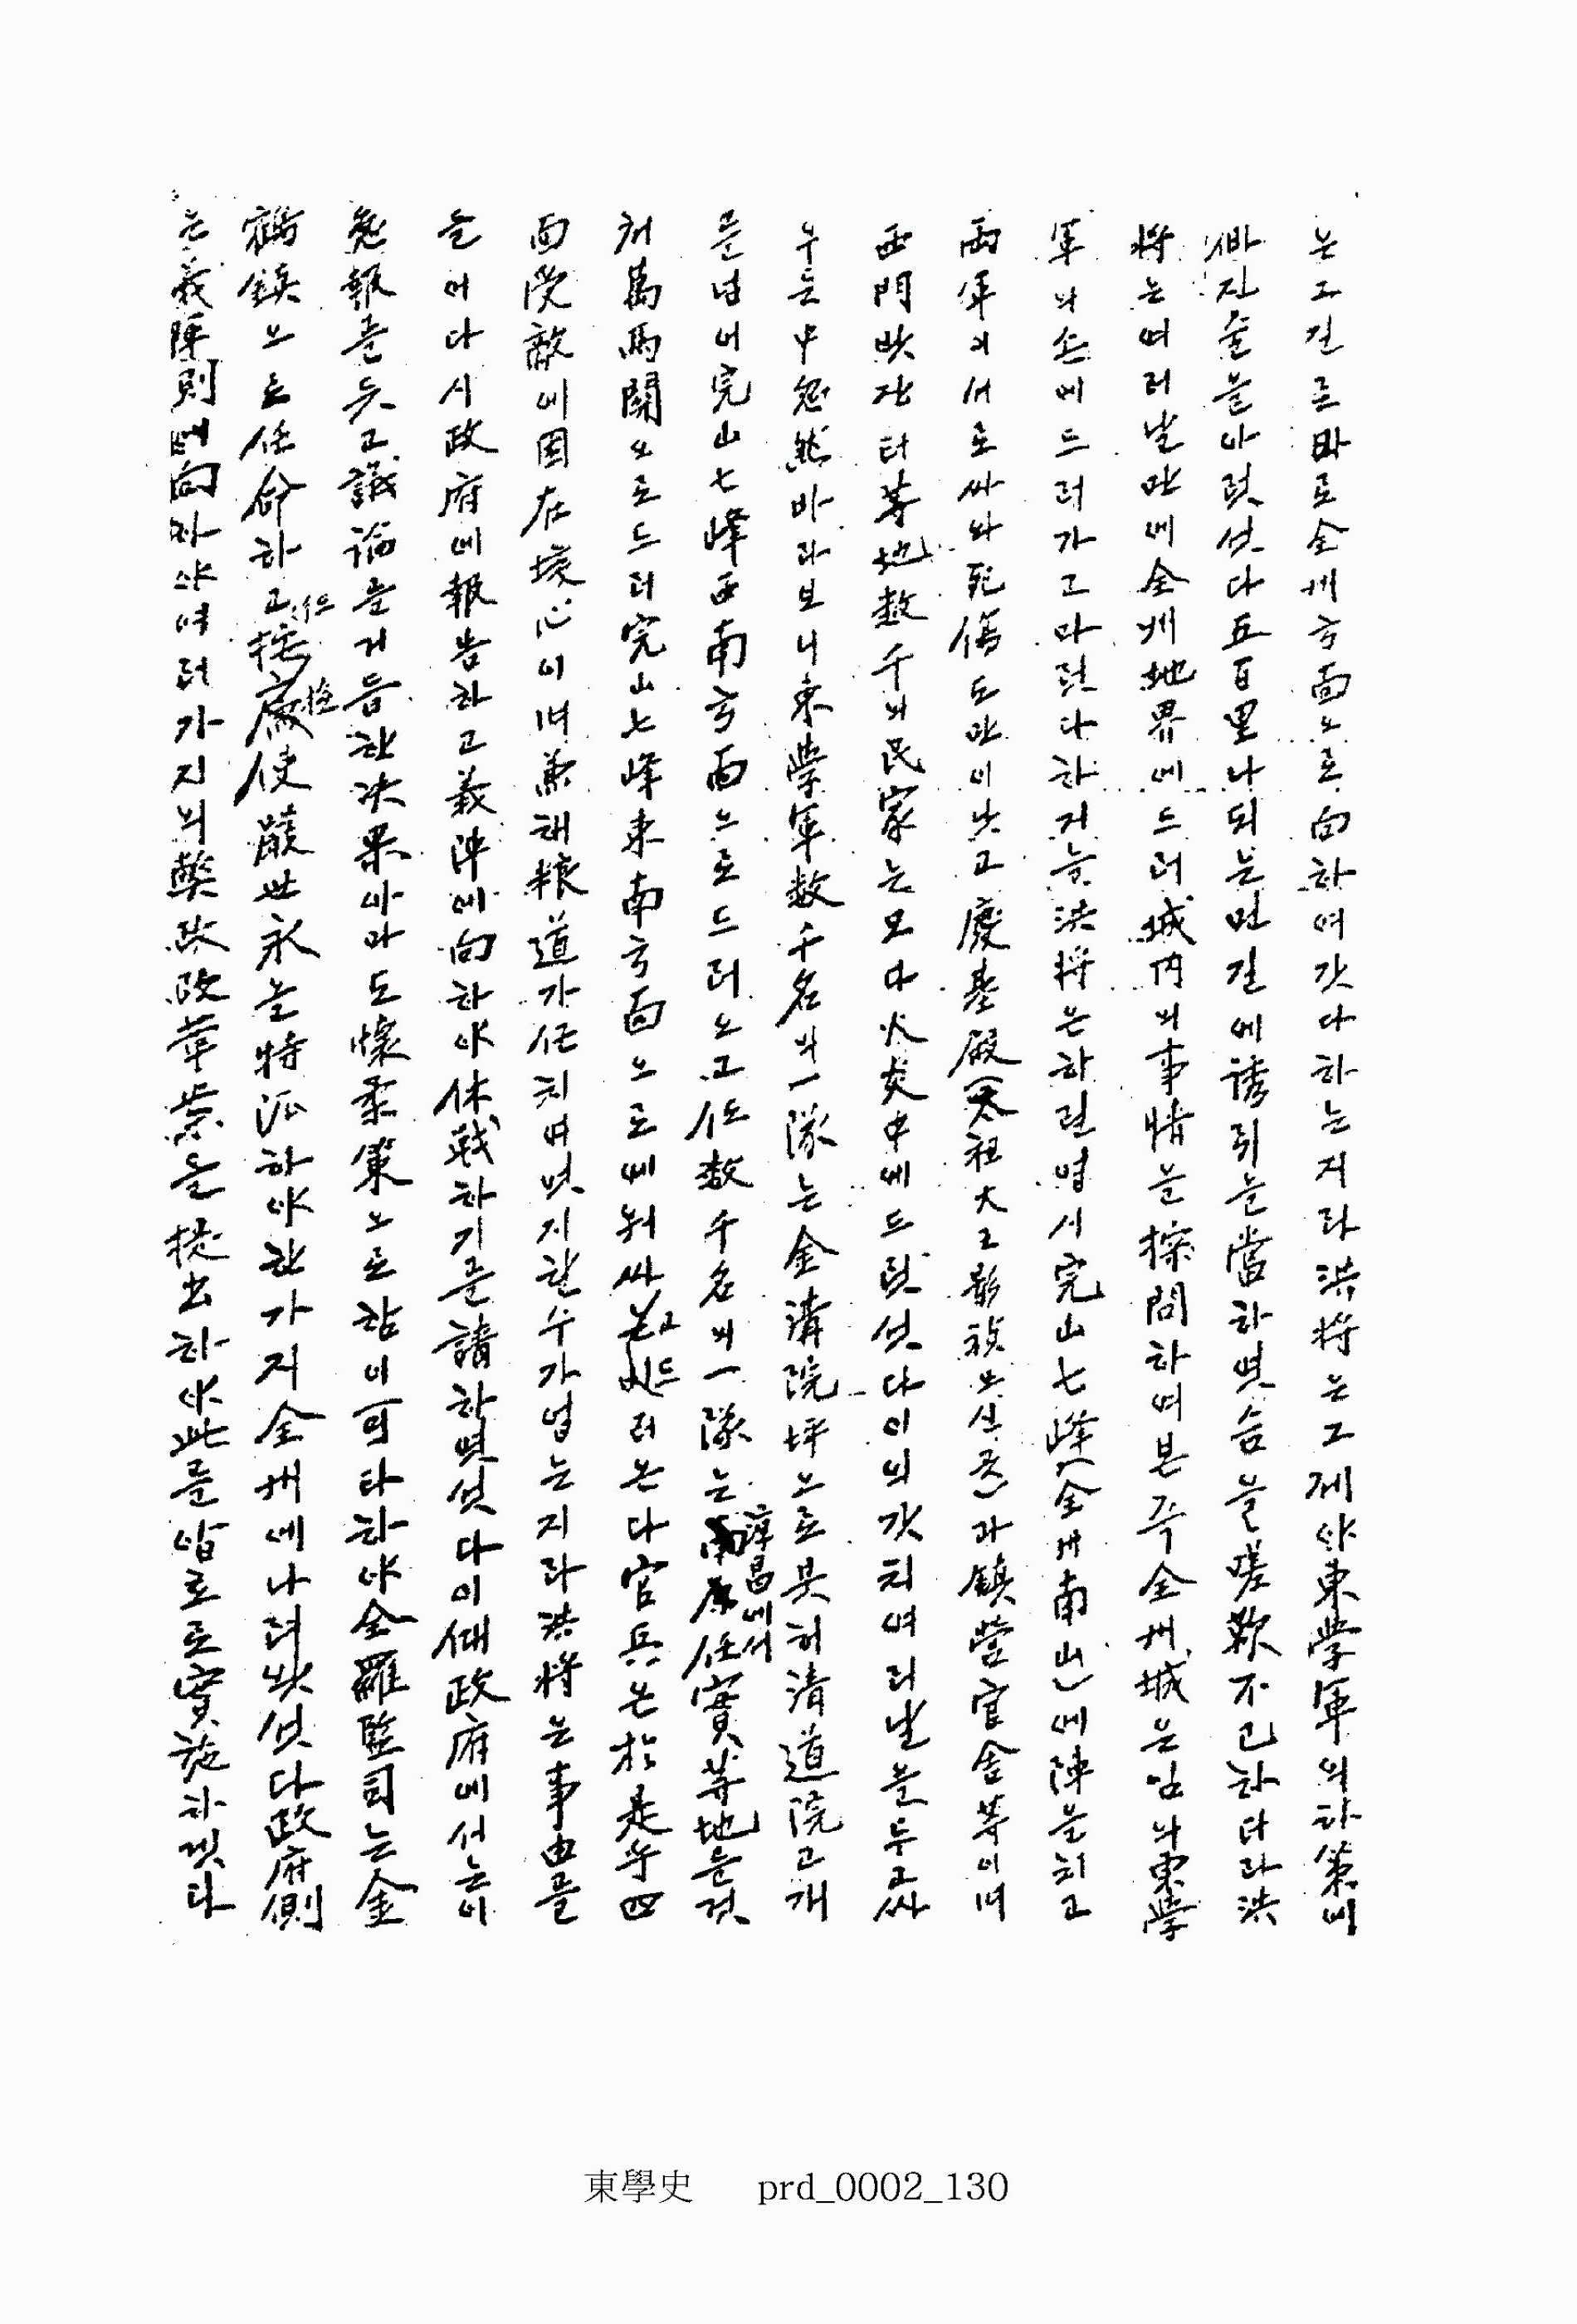 는 그 길로 바로 全州方面으로 向하여 갓다 하는지라 洪將는 그제야 東學軍의 하策에
빠진줄을 아럿섯다 五百里나 되는 먼 길에 誘引을 當하엿슴을 嗟歎不已하더라 洪
將는 여러 날만에 全州地界에 드러 城內의 事情을 探問하여 본 즉 全州城은 임의 東學
軍의 손에 드러가고 마럿다 하거늘 洪將은 하련 업시 完山七峰(全州南山)에 陣을 치고
兩軍이 서로 싸와 死傷도 만이 낫고 慶基殿(太祖大王影幀 모신 곳)과 鎭營官舍 等이며
西門밧 장터 等地 數千의 民家는 모다 火炎中에 드럿섯다 이의 갓치 여러 날을 두고 싸
우든 中 忽然 바라보니 東學軍 數千名의 一隊는 金溝院坪으로븟허 淸道院고개
를 넘어 完山七峰 西南方面으로 드러오고 또 數千名의 一隊는 淳昌에서 任實 等地를 것
처 萬馬關으로 드러 完山七峰 東南方面으로 에워싸고 드러온다 官兵은 於是乎 四
面受敵에 困在垓心이며 兼해 粮道가 끈치여 엇지 할 수가 업는지라 洪將는 事由를
들어 다시 政府에 報告하고 義陣에 向하야 休戰하기를 請하엿섯다 이 때 政府에서는 이
急報를 듯고 議論을 거듭한 決果 아마도 懷柔策으로 함이 可타 하야 全羅監司는 金
鶴鎭으로 任命하고 按廉使 嚴世永을 特派하야 한가지 全州에 나려왓섯다 政府側
는 義陣側에 向하야 여러 가지의 弊政改革案을 提出하야 此를 압흐로 實施하겟다
東學史 prd_0002_130